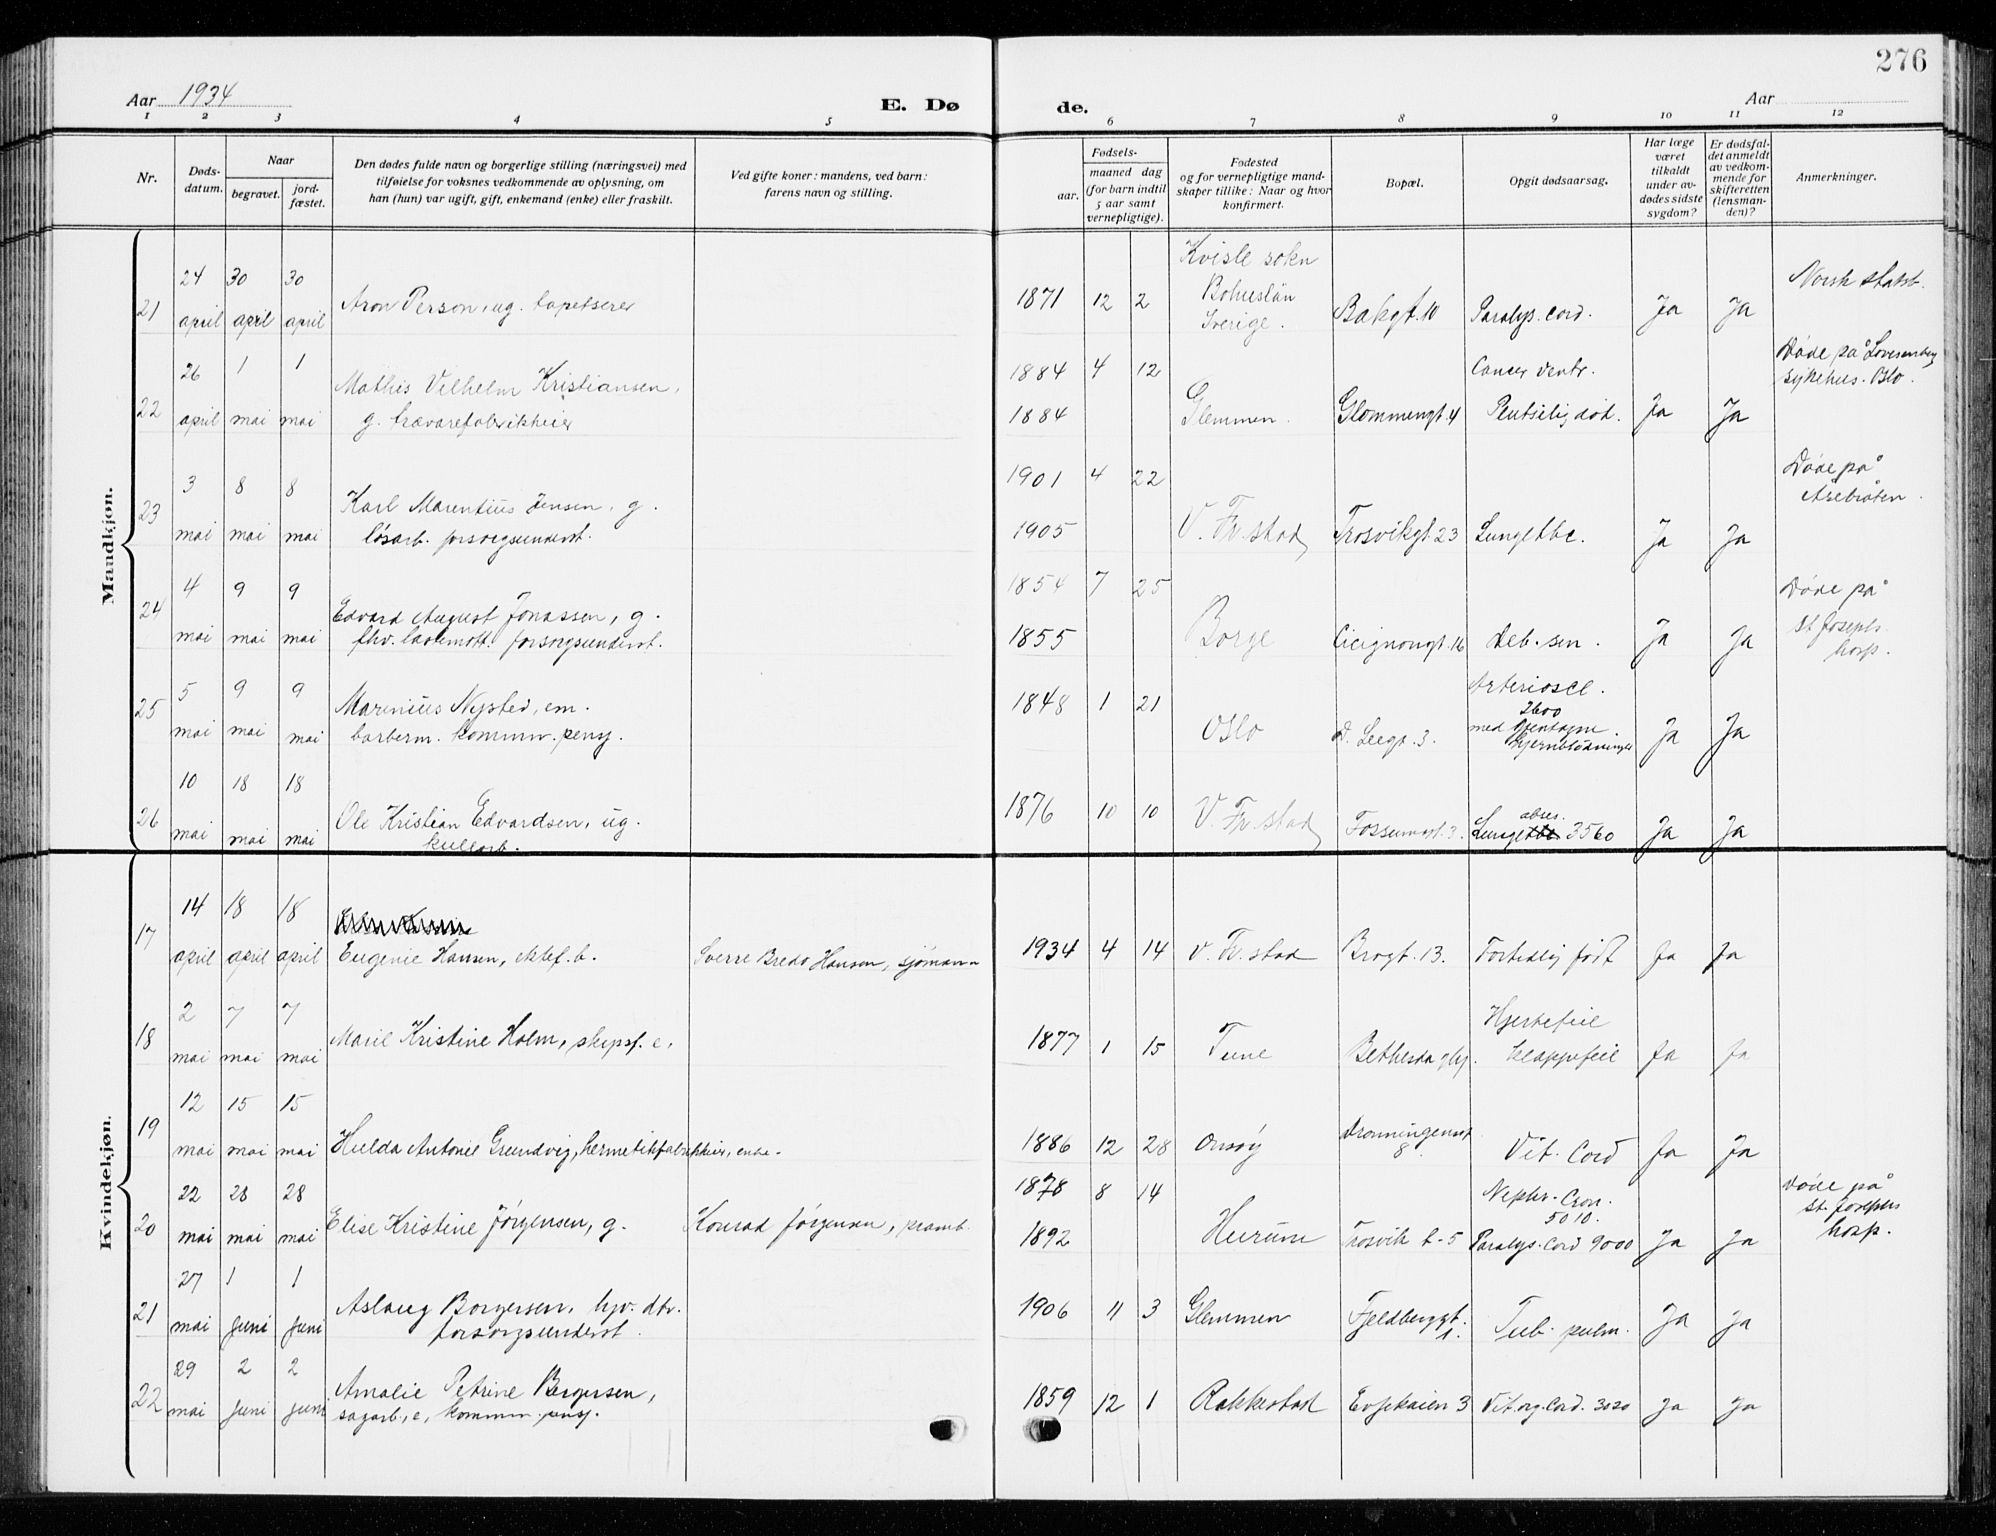 276
Aar 1934
E. Dø
de.
Aar
1 2 3 4 5 6 7 8 9 10 11 12
Nr.
Døds-
datum.
Naar
begravet.
jord-
fæstet.
Den dødes fulde navn og borgerlige stilling (næringsvei) med
tilføielse for voksnes vedkommende av oplysning, om
han (hun) var ugift, gift, enkemand (enke) eller fraskilt.
Ved gifte koner: mandens, ved barn:
farens navn og stilling.
Fødsels-
aar.
maaned dag
(for barn indtil
5 aar samt
vernepligtige).
Fødested
og for vernepligtige mand-
skaper tillike: Naar og hvor
konfirmert.
Bopæl.
Opgit dødsaarsag.
Har læge
været
tilkaldt
under av-
dødes sidste
sygdom?
Er dødsfal-
det anmeldt
av vedkom-
mende for
skifteretten
(lensman-
den)?
Anmerkninger.
Mandkjøn.
Kville sokn
24 30 30
Bohuslän
Norsk statsb.
21 april april april Aron Person, ug. tapetserer 1871 12 2 Sverige. Bakgt. 10 Paralys. cord. Ja Ja
26 1 1 Mathis Vilhelm Kristiansen, 1884 4 12 Cancer ventr. Døde på Lovisenberg
sykehus. Oslo.
22 april mai mai g. trævarefabrikkeier 1884 Glemmen. Glommengt. 4 Ja Ja
3 8 8 1901 4 22 Døde på
23 Karl Marentius Jensen, g.
mai mai mai løsarb. forsorgsunderst. 1905 V. Fr.stad Trosvikgt. 23 Lungetbc. Ja Ja
4 9 9 1854 7 25 Døde på
24 Edvard August Jonassen, g. st. Josephs
mai mai mai fhv. forsorgsunderst. 1855 Borge Cicignongt. 16 Deb. sen. Ja Ja hosp.
5 9 9 Arterioscl.
25 Marinius Nysted, em. 1848 1 21 2600
mai mai mai barberm. kommun. pensj. Oslo O. Leegt. 3. med gjentagne Ja Ja
hjerneblødninger
10 18 18
26 Ole Kristian Edvardsen, ug. 1876 10 10 V. Fr.stad Fossumgt. 3. absc.
mai mai mai kullarb. Lungetbc 3560 Ja Ja
Kvindekjøn.
14 18 18
17 april april april Eugenie Hansen, ektef. b. Sverre Bredo Hansen, sjømann 1934 4 14 V. Fr.stad Brogt. 13. Fortidlig født Ja Ja
2 7 7 Hjertefeil
18 mai mai mai Marie Kristine Holm, skipsf. e. 1877 1 15 Tune Bethesda klappefeil Ja Ja
12 15 15
19 Dronningensgt.
mai mai mai Hulda Antonie Grundvig, hermetikfabrikkeier, enke. 1886 12 28 Onsøy 8. Vit. Cord Ja Ja
22 28 28 1878 8 14 Nephr. Cron. Døde på
5010. st. Josephs
20 mai mai mai Elise Kristine Jørgensen, g. Konrad Jørgensen, pramb. 1892 Hurum Trosvik t-5 Paralys. Cord 9000 Ja Ja hosp.
27 1 1
21 Aslaug Borgersen, hjv. dtr. 1906 11 3 Glemmen Fjeldberggt.
mai juni juni forsorgsunderst. 1. Tub. pulm. Ja Ja
29 2 2
22 mai juni juni Amalie Petrine Borgersen, 1859 12 1 Rakkestad Evjekaien 3 Vit. org. Cord. 3020 Ja Ja
sagarb. e, kommun. pensj.